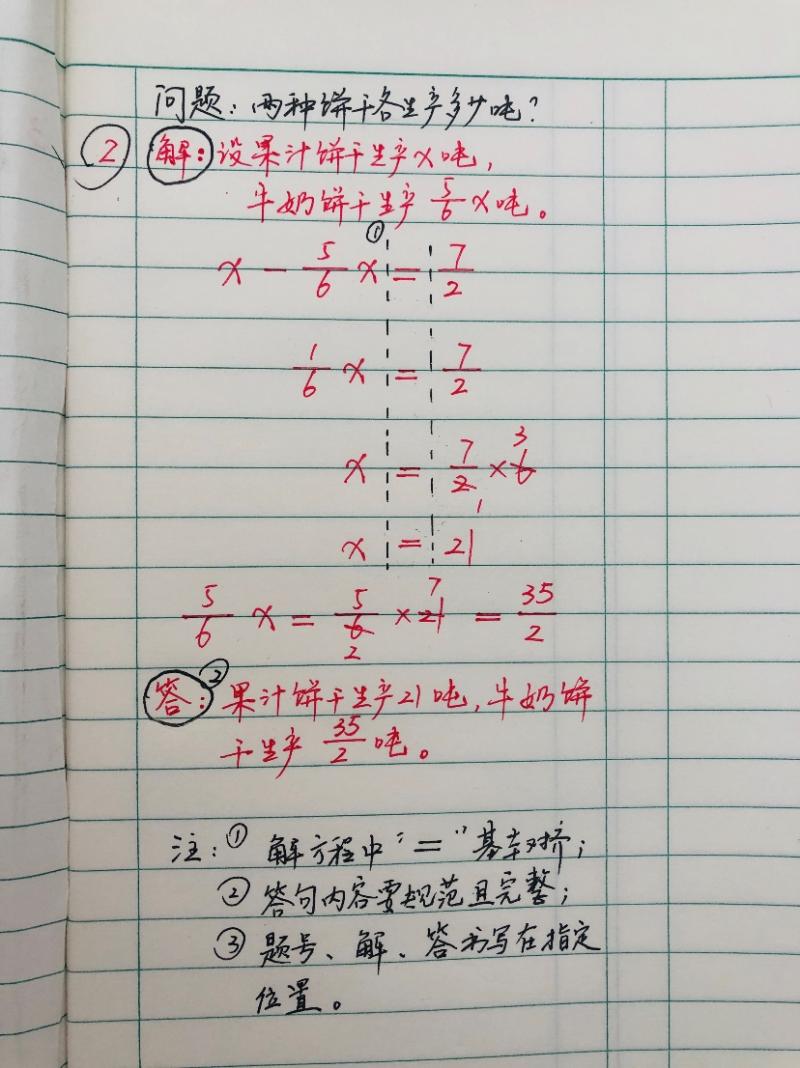 问题：两种饼干各生产多少吨？
② 解：设果汁饼干生产x吨，
牛奶饼干生产 5/6 x吨。
①
x - 5/6 x = 7/2
1/6 x = 7/2
x = 7/2 × 6 3 1
x = 21
5/6 x = 5/6 × 21 = 35/2 7 2
答：② 果汁饼干生产21吨，牛奶饼
干生产 35/2 吨。
注：① 解方程中“＝”基本对齐；
② 答句内容要规范且完整；
③ 题号、解、答书写在指定
位置。